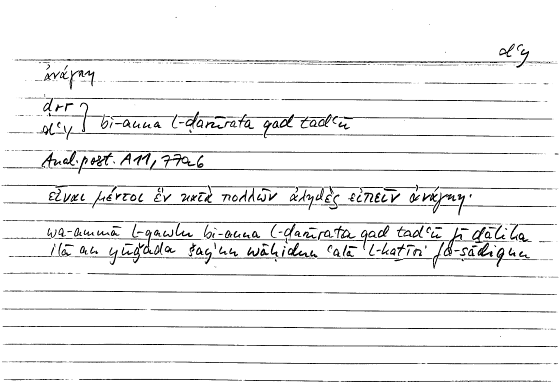 dʿy
ἀνάγκη
ḍrr
dʿy } bi-anna l-ḍarūrata qad tadʿū
Anal. post. A 11, 77a6
εἶναι μέντοι ἓν κατὰ πολλῶν ἀληθὲς εἰπεῖν ἀνάγκη·
wa-ammā l-qawlu bi-anna l-ḍarūrata qad tadʿū fī ḏālika
ilā an yūǧada šayʾun wāḥidun ʿalā ʾl-kaṯīri fa-ṣādiqun